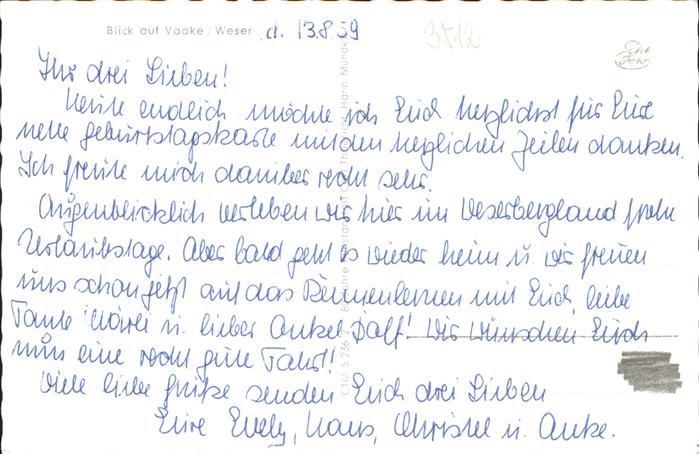 Blick auf Vaake / Weser d. 13.8.59
3512
Ihr drei Lieben!
Heute endlich möchte ich Euch herzlichst für Eure
nette Geburtstagskarte mit den herzlichen Zeilen danken.
Ich freute mich darüber recht sehr.
Augenblicklich verleben wir hier im Weserbergland frohe
Urlaubstage. Aber bald geht es wieder heim u. wir freuen
uns schon jetzt auf das Kennenlernen mit Euch, liebe
Tante u. lieber Onkel Dolf! Wir wünschen Euch
nun eine recht gute Fahrt!
Viele liebe Grüße senden Euch drei Lieben
Eure Evely, Hans, Christel u. Anke.